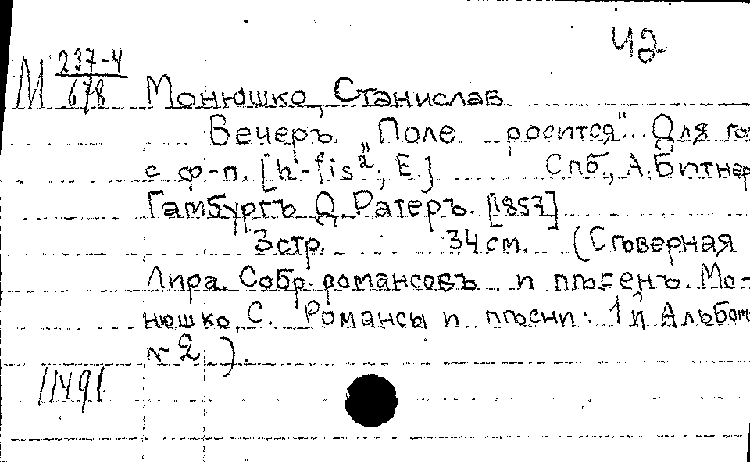 42
М 237-4/678
Монюшко, Станислав
Вечеръ "Поле росится". Для го
с ф-п. [h-fis², E.] Спб., А. Битнер
Гамбургъ Д. Ратеръ. [1857]
3 стр. 34 см. (Сѣверная
Лира. Собр. романсовъ и пѣсенъ. Мо-
нюшко, С. Романсы и пѣсни. 1й Альбом
№ 2.).